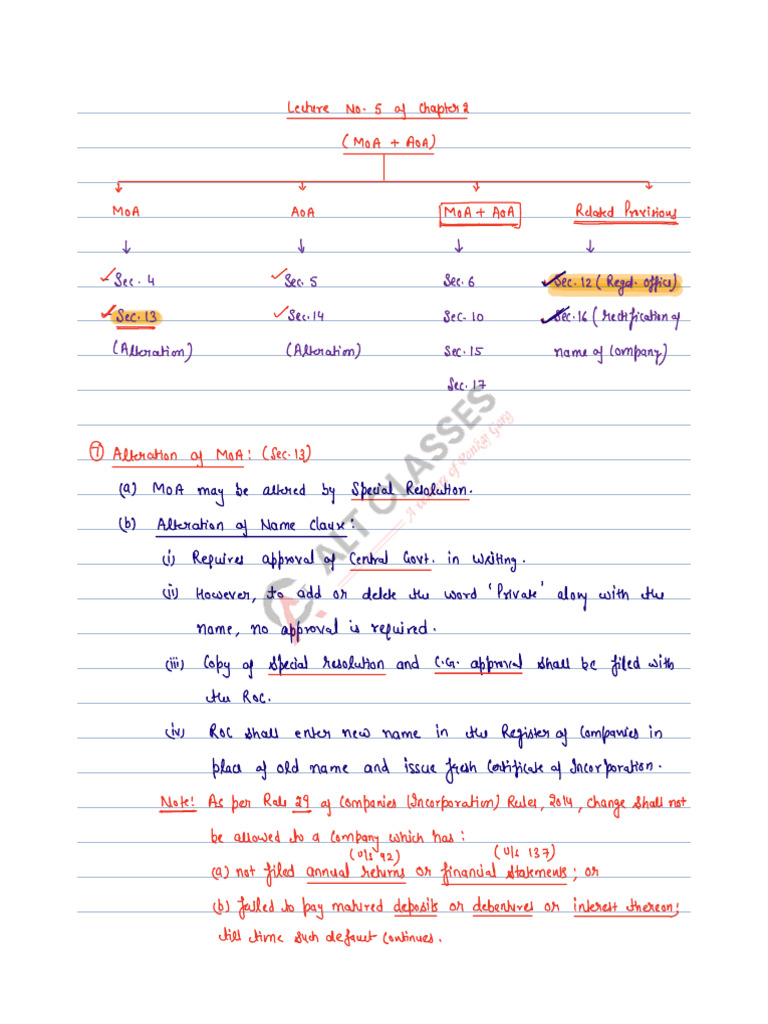 Lecture No. 5 of Chapter 2
(MOA + AOA)
MOA AOA MOA + AOA Related Provisions
Sec. 4 Sec. 5 Sec. 6 Sec. 12 (Regd. office)
Sec. 13 Sec. 14 Sec. 10 Sec. 16 (rectification of
(Alteration) (Alteration) Sec. 15 name of company)
Sec. 17
7 Alteration of MOA: (Sec. 13)
(a) MOA may be altered by Special Resolution.
(b) Alteration of Name Clause:
(i) Requires approval of Central Govt. in writing.
(ii) However, to add or delete the word 'Private' along with the
name, no approval is required.
(iii) Copy of special resolution and C.G. approval shall be filed with
the ROC.
(iv) ROC shall enter new name in the Register of Companies in
place of old name and issue fresh Certificate of Incorporation.
Note: As per Rule 29 of Companies (Incorporation) Rules, 2014, change shall not
be allowed to a company which has:
(U/s 92) (U/s 137)
(a) not filed annual returns or financial statements; or
(b) failed to pay matured deposits or debentures or interest thereon;
till time such default continues.
ALT CLASSES
A Academy of Pankaj Garg